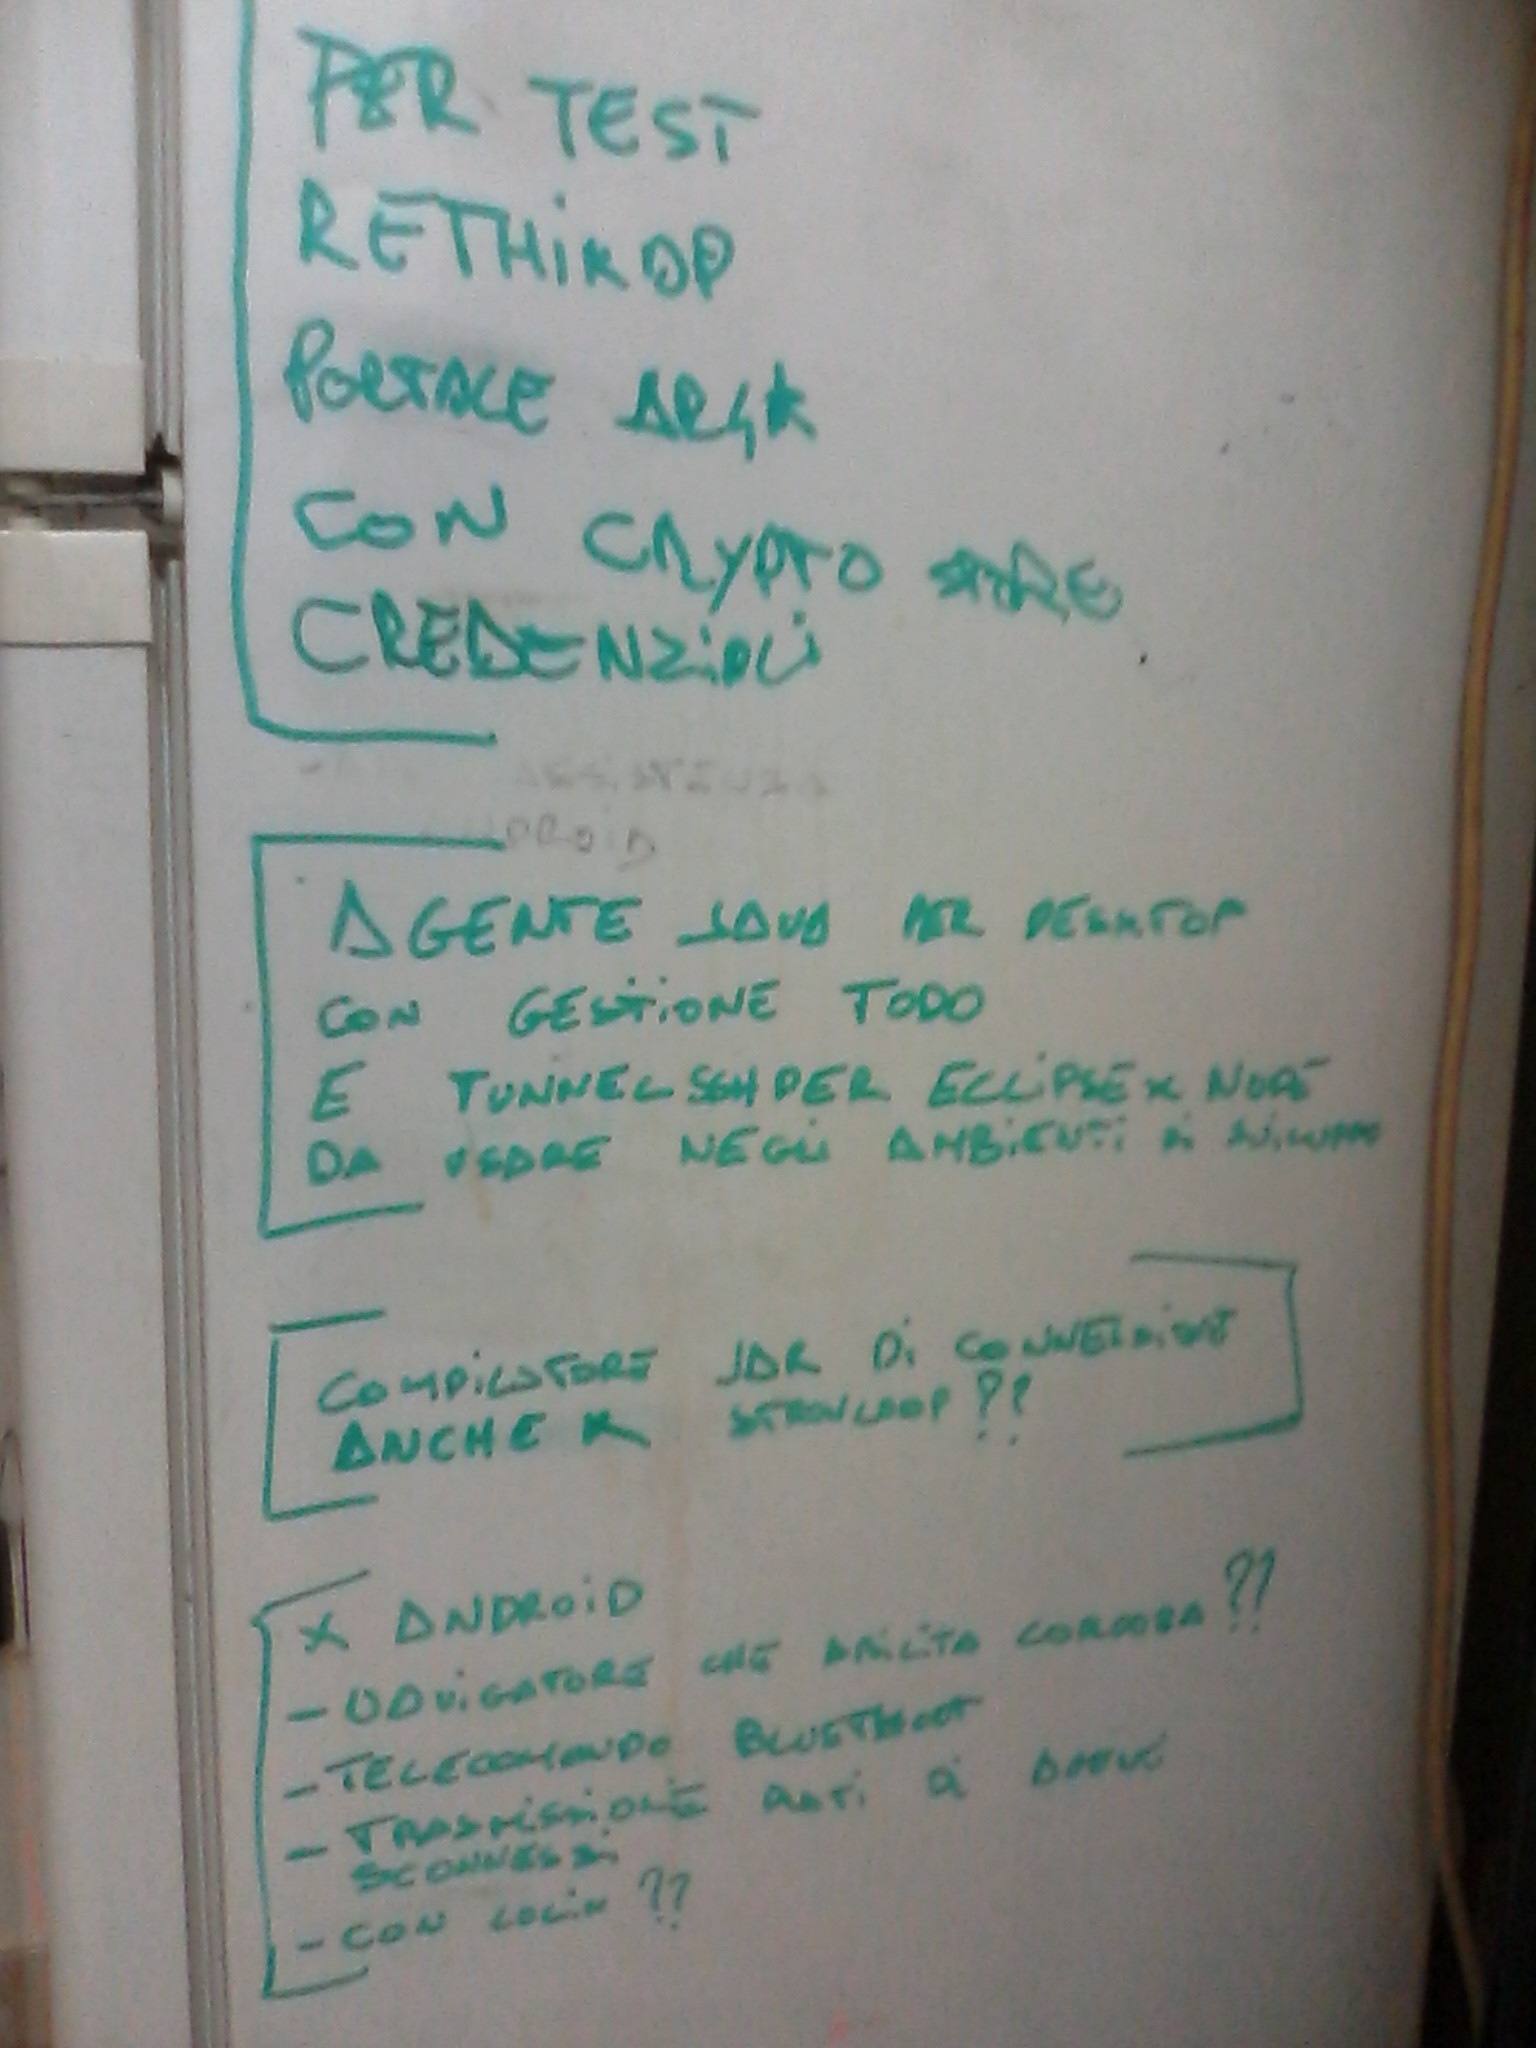 PER TEST
RETHINKDB
PORTALE
CON CRYPTO
CREDENZIALI
DROID
AGENTE JAVA PER DESKTOP
CON GESTIONE TODO
E TUNNEL SSH PER ECLIPSE X NODE
DA USARE NEGLI AMBIENTI DI SVILUPPO
COMPILATORE JAR DI CONNESSIONE
ANCHE X STRONGLOOP ??
X ANDROID
- NAVIGATORE CHE ABILITA CORDOBA ??
- TELECOMANDO BLUETOOOT
- TRASMISSIONE DATI DI
SCONNESSI
- CON LOGIN ??